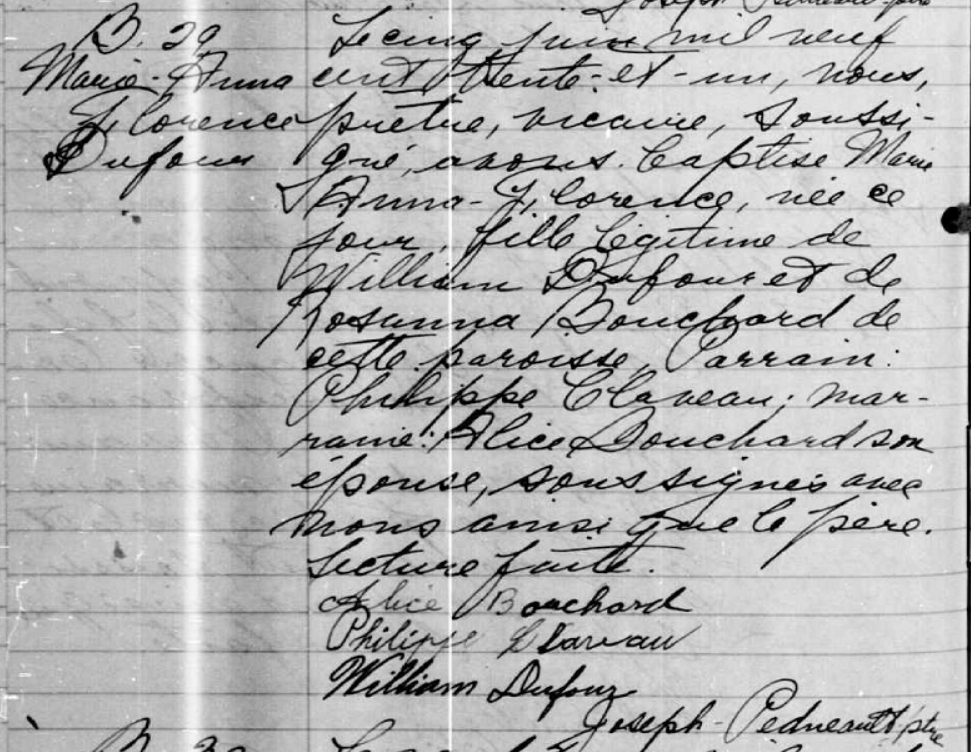 B. 29
Marie-Anna
Florence
Dufour
Le cinq juin mil neuf
cent trente-et-un, nous,
prêtre, vicaire, soussi-
gné, avons baptisé Marie
Anna-Florence, née ce
jour, fille légitime de
William Dufour et de
Rosanna Bouchard de
cette paroisse, Parrain:
Philippe Claveau; mar-
raine: Alice Bouchard son
épouse, soussignés avec
nous ainsi que le père.
Lecture faite.
Alice Bouchard
Philippe Claveau
William Dufour
Joseph Pedneault ptre